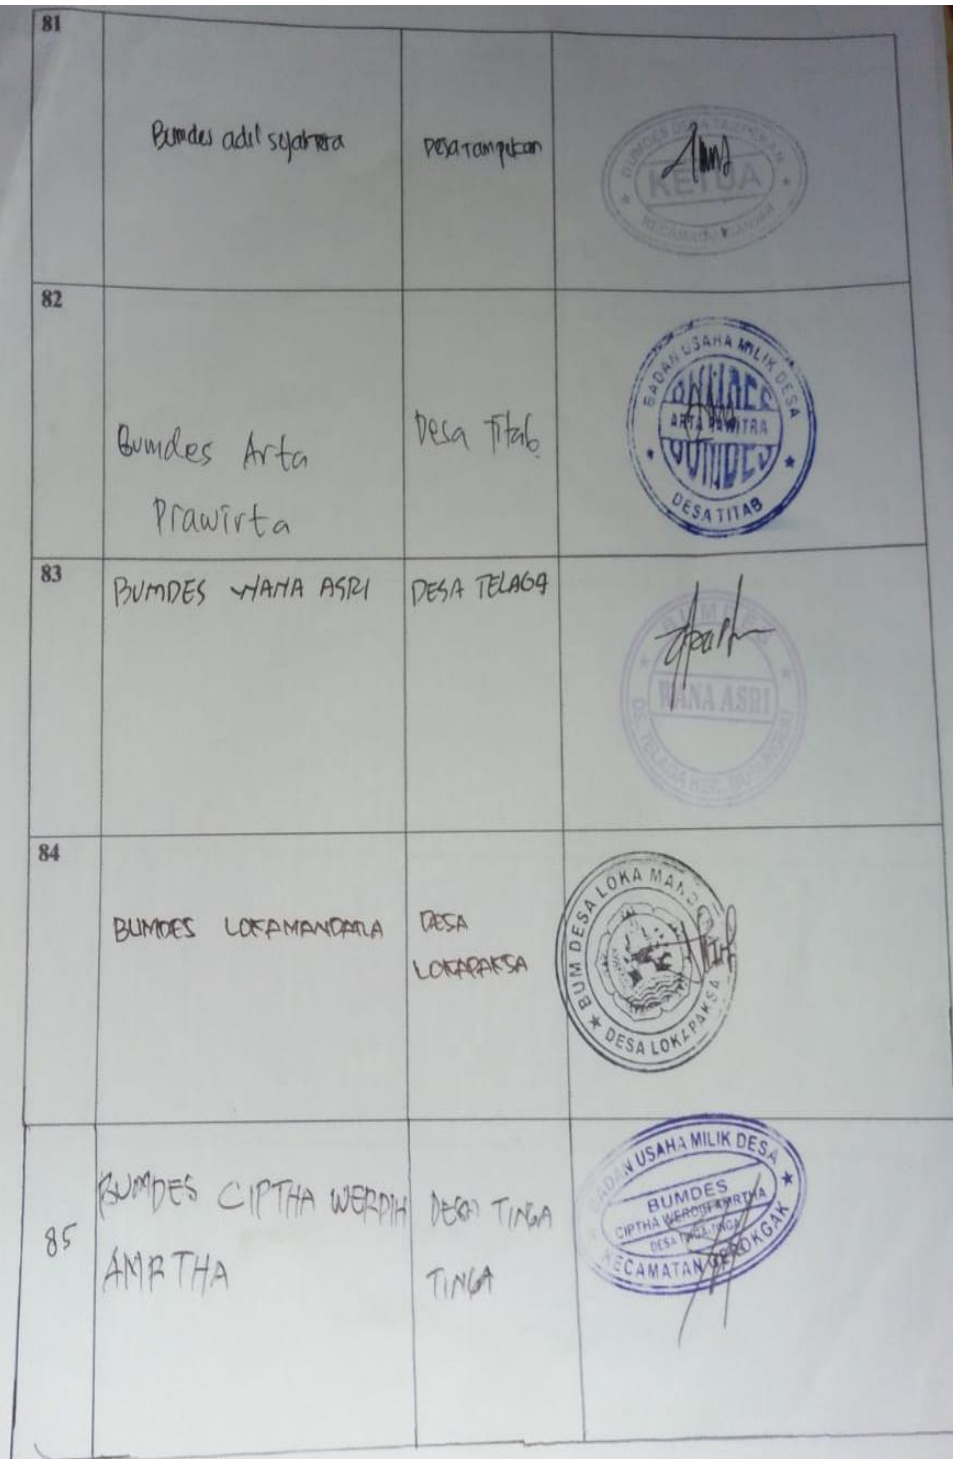 81
Bumdes adil sejahtera
Desa Tampekan
KETUA
82
Bumdes Arta
Prawirta
Desa Titab
BADAN USAHA MILIK DESA
BUMDES
ARTA PAWITRA
BUMDES
DESA TITAB
83
BUMDES WANA ASRI
DESA TELAGA
BUMDES
WANA ASRI
84
BUMDES LOKAMANDARA
DESA
LOKAPAKSA
BUM DESA LOKA
DESA LOKAPAKSA
85
BUMDES CIPTHA WERDIH
AMRTHA
DESA TINGA
TINGA
BADAN USAHA MILIK DESA
BUMDES
CIPTHA WERDIH AMRTHA
DESA TINGA-TINGA
KECAMATAN GEROKGAK